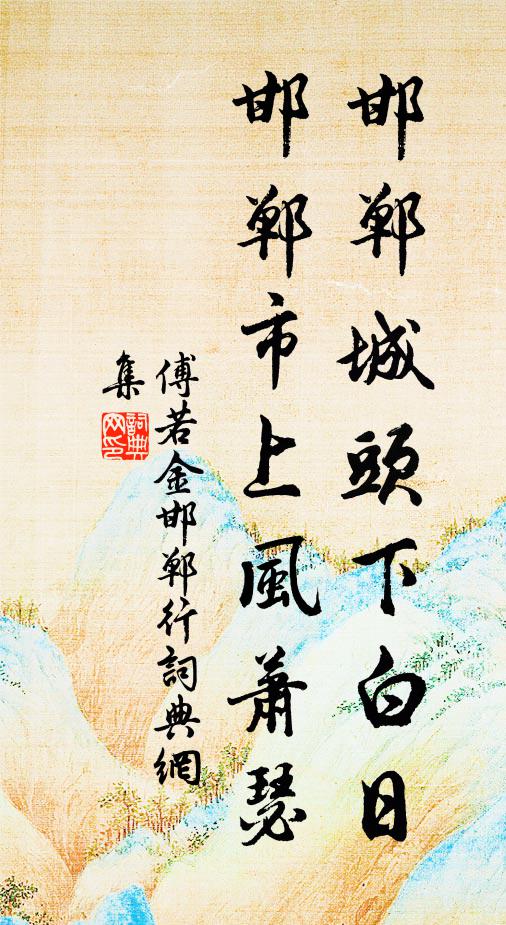 邯鄲城頭下白日
邯鄲市上風蕭瑟
傅若金邯鄲行詞典網
集
詞典
网印